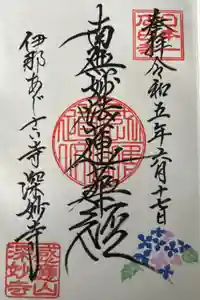 奉拝 令和五年六月十七日
南無妙法蓮華経
伊那あじさい寺 深妙寺